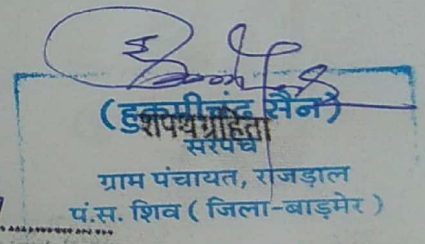 (हुकमीचंद सैन)
शपथग्रहिता
सरपंच
ग्राम पंचायत, राजड़ाल
पं.स. शिव ( जिला-बाड़मेर )